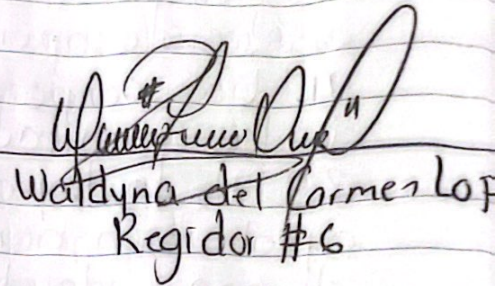 Waldyna del Carmen Lop
Regidor #6